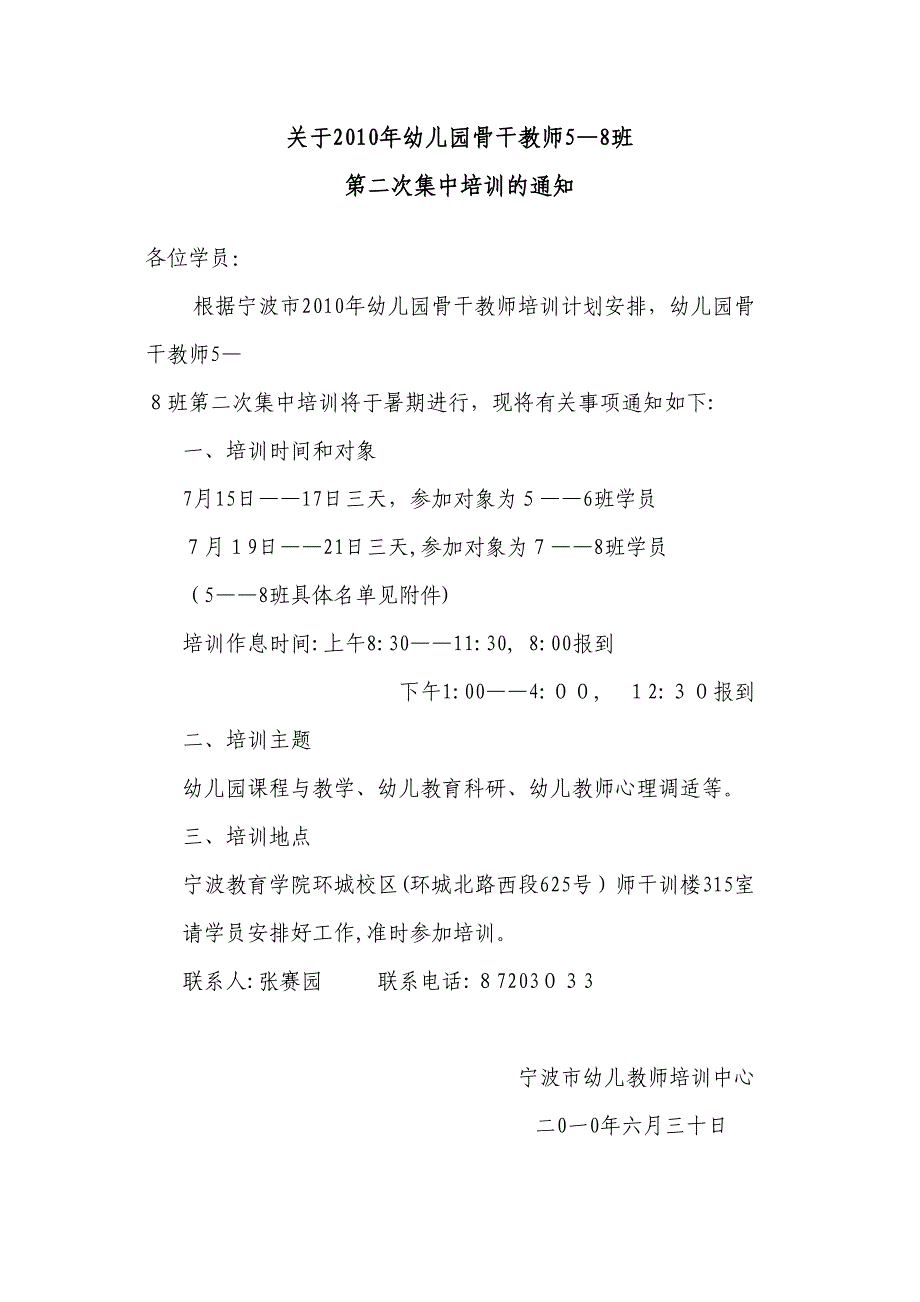 关于2010年幼儿园骨干教师5—8班
第二次集中培训的通知
各位学员：
根据宁波市2010年幼儿园骨干教师培训计划安排，幼儿园骨
干教师5—
８班第二次集中培训将于暑期进行，现将有关事项通知如下：
一、培训时间和对象
7月15日——17日三天，参加对象为５——6班学员
７月１9日——21日三天,参加对象为７——8班学员
（5——8班具体名单见附件)
培训作息时间:上午8:30——11:30, 8:00报到
下午1:00——4:００, １2:３０报到
二、培训主题
幼儿园课程与教学、幼儿教育科研、幼儿教师心理调适等。
三、培训地点
宁波教育学院环城校区(环城北路西段625号）师干训楼315室
请学员安排好工作,准时参加培训。
联系人:张赛园 联系电话:８7203０３３
宁波市幼儿教师培训中心
二0一0年六月三十日